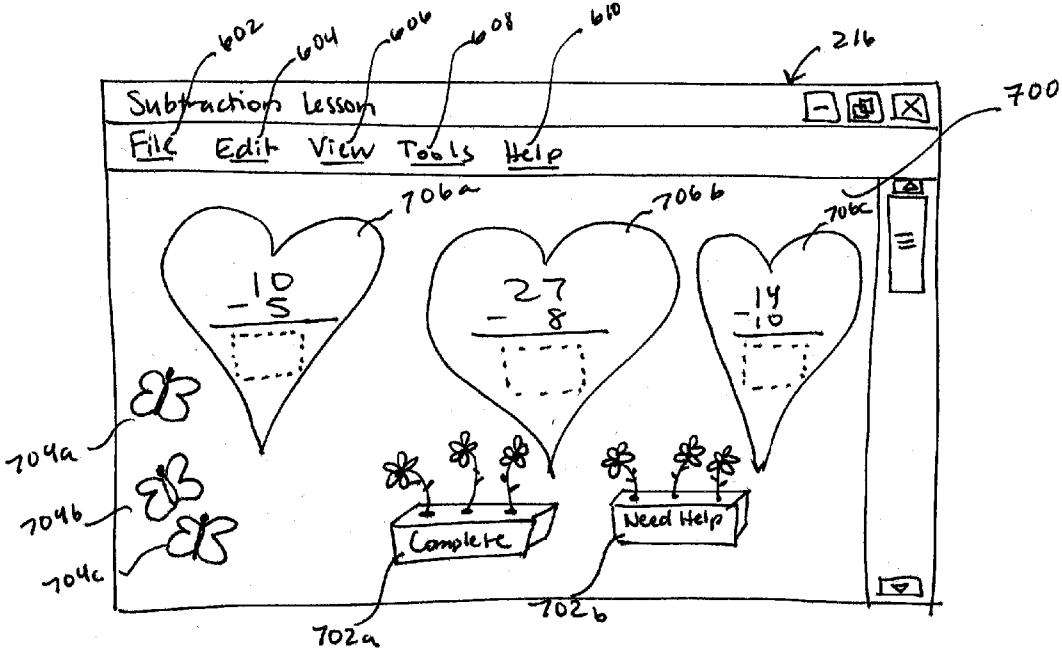 602 604 606 608 610 216
700
Subtraction Lesson
File Edit View Tools Help
706a 706b 706c
10
- 5
27
- 8
14
- 10
704a
704b
704c
Complete
Need Help
702a 702b